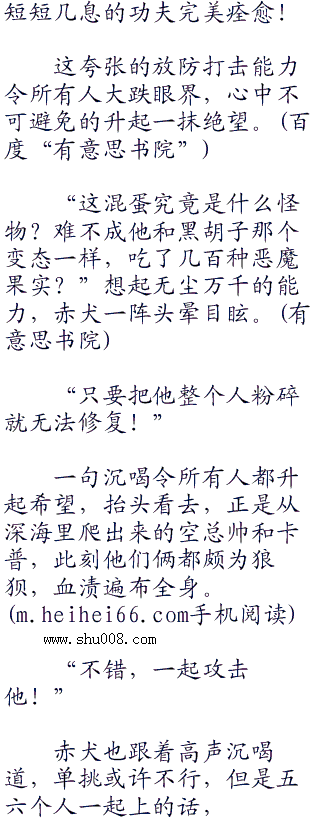 短短几息的功夫完美痊愈！
这夸张的放防打击能力
令所有人大跌眼界，心中不
可避免的升起一抹绝望。(百
度“有意思书院”)
“这混蛋究竟是什么怪
物？难不成他和黑胡子那个
变态一样，吃了几百种恶魔
果实？”想起无尘万千的能
力，赤犬一阵头晕目眩。(有
意思书院)
“只要把他整个人粉碎
就无法修复！”
一句沉喝令所有人都升
起希望，抬头看去，正是从
深海里爬出来的空总帅和卡
普，此刻他们俩都颇为狼
狈，血渍遍布全身。
(m.heihei66.com手机阅读)
www.shu008.com
“不错，一起攻击
他！”
赤犬也跟着高声沉喝
道，单挑或许不行，但是五
六个人一起上的话，